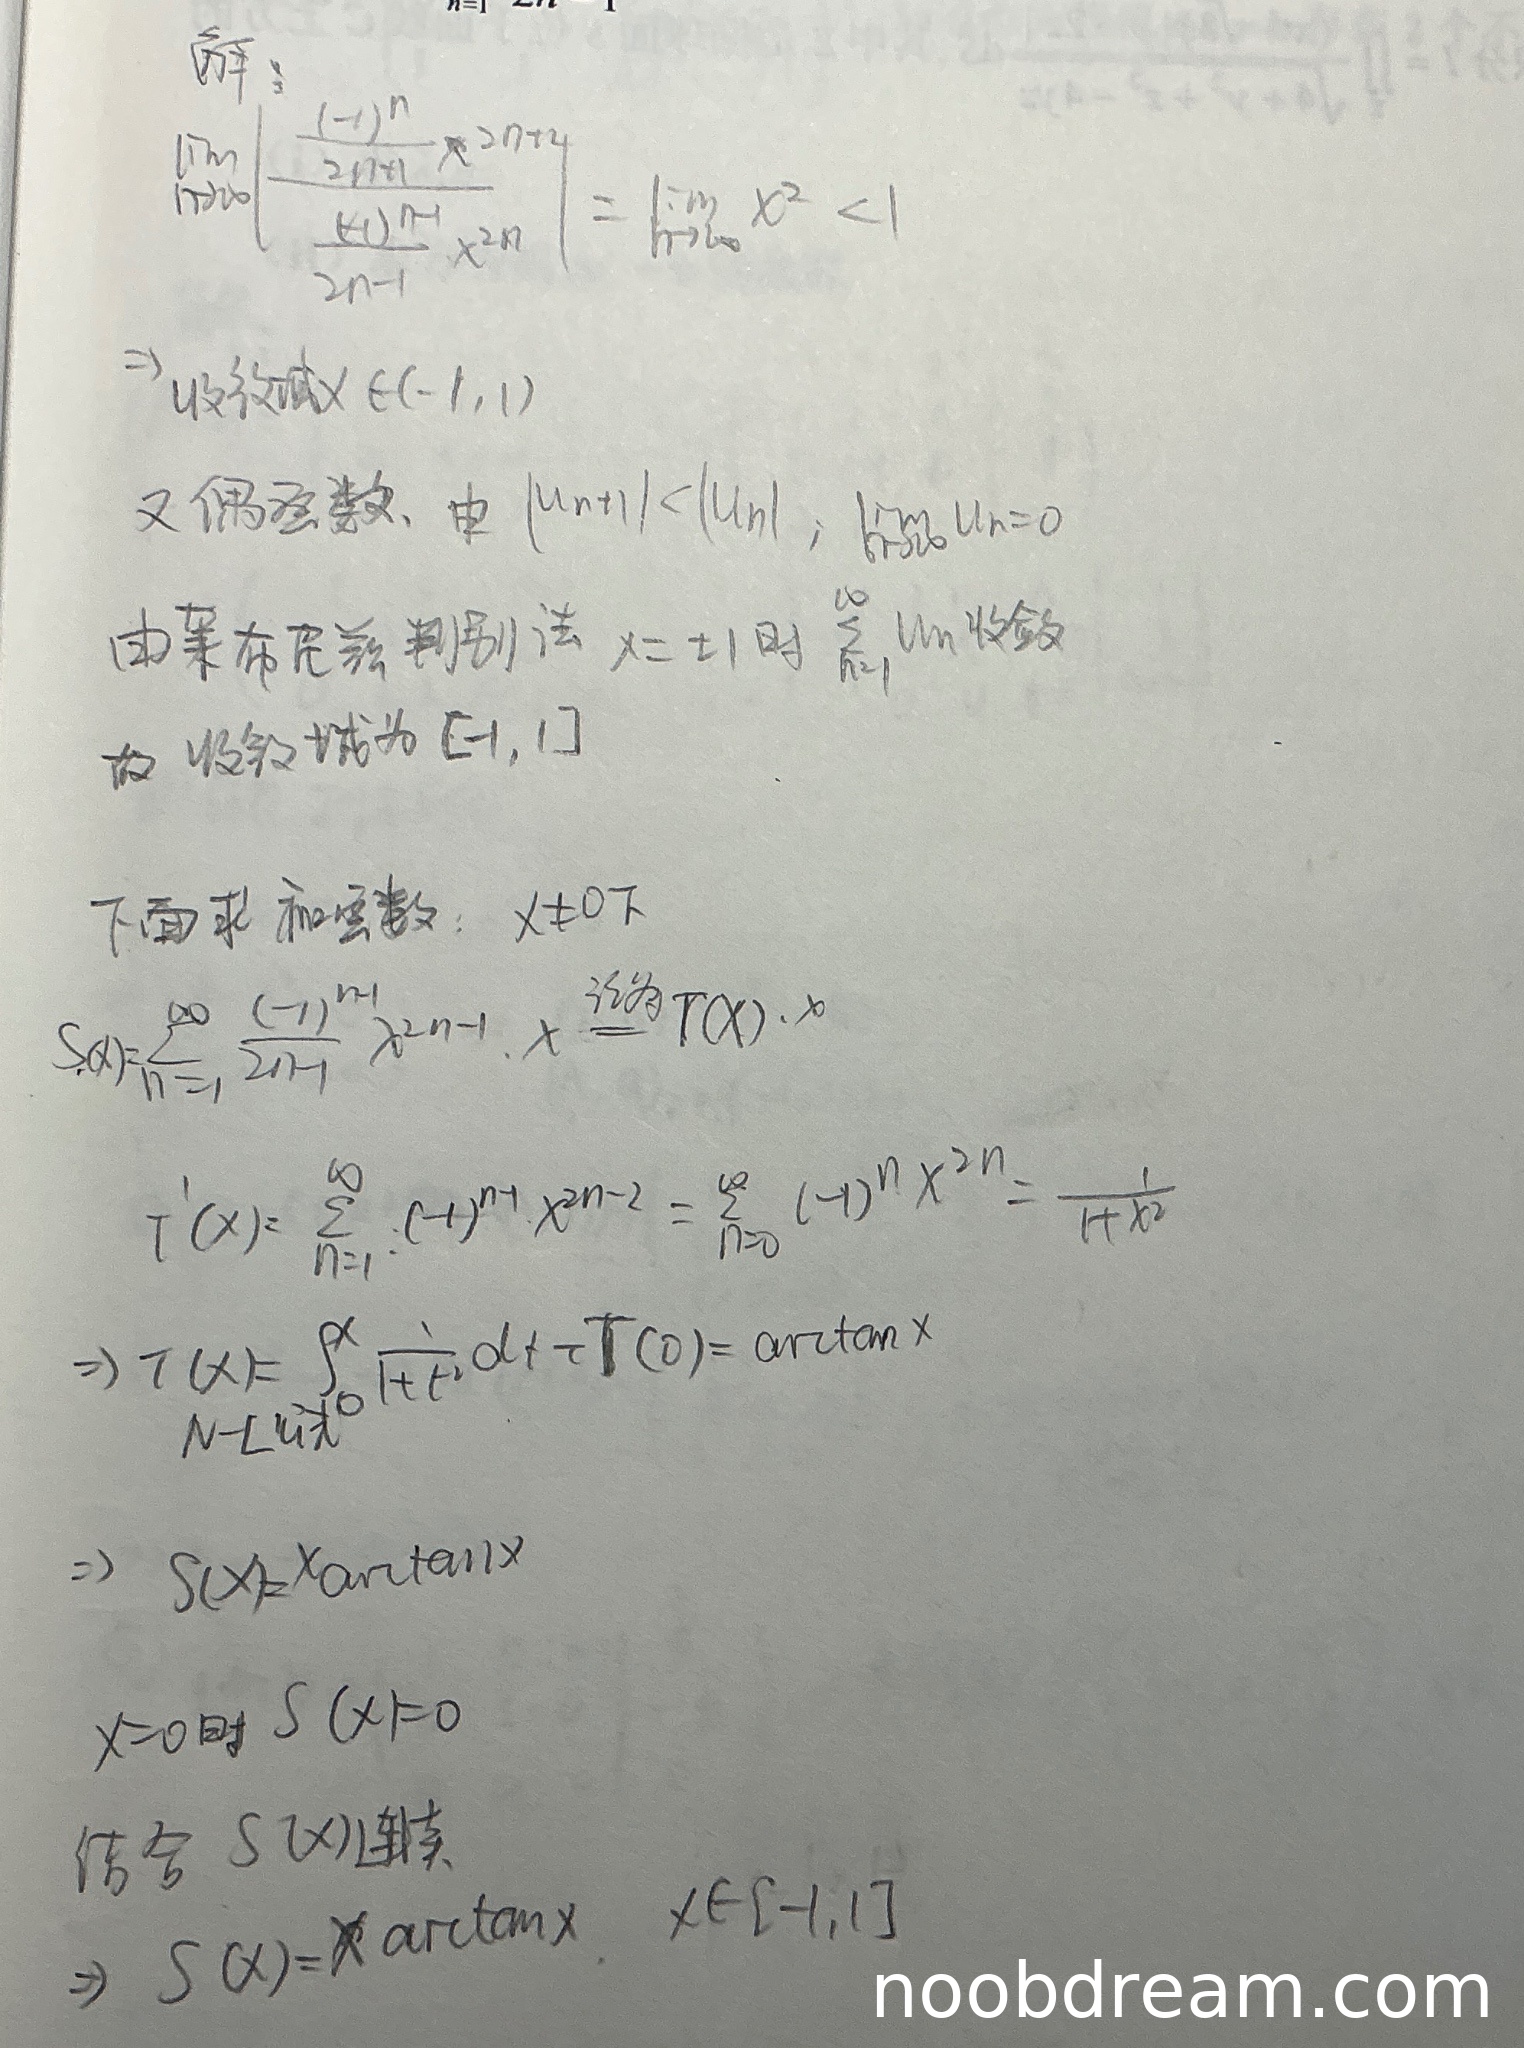 解：
lim n→∞ | ((-1)^n/(2n+1) x^{2n+2}) / ((-1)^{n-1}/(2n-1) x^{2n}) | = lim n→∞ x² < 1
⇒ 收敛域 x∈(-1,1)
又偶函数、由 |Un+1|<|Un| , lim n→∞ Un=0
由莱布尼兹判别法 x=±1时 ∑_{n=1}^{∞} Un 收敛
故 收敛域为 [-1,1]
下面求和函数： x≠0下
S(x)=∑_{n=1}^{∞} (-1)^{n-1}/(2n-1) x^{2n-1}·x 记为= T(x)·x
T'(x)=∑_{n=1}^{∞} (-1)^{n-1}·x^{2n-2} = ∑_{n=0}^{∞} (-1)^n x^{2n} = 1/(1+x²)
⇒ T(x)= ∫_0^x 1/(1+t²) dt + T(0)= arctanx
N-L公式
⇒ S(x)=xarctanx
x=0时 S(x)=0
结合 S(x)连续
⇒ S(x)=x arctanx. x∈[-1,1]
noobdream.com